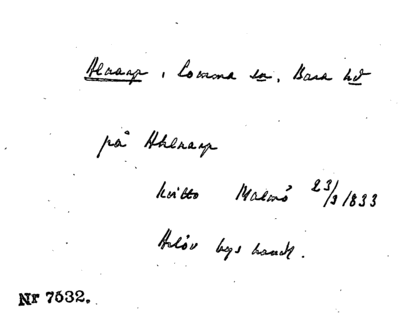 Alnarp, Lomma sn, Bara hd
på Alnarp
kvitto Malmö 23/3 1833
hand.
Nr 7532.